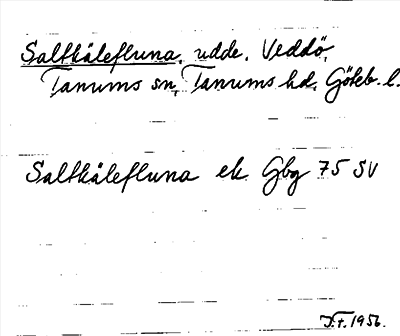 Saltkålefluna, udde, Veddö,
Tanums sn, Tanums hd, Göteb. l.
Saltkålefluna ek Gbg 75 SV
J.t. 1956.